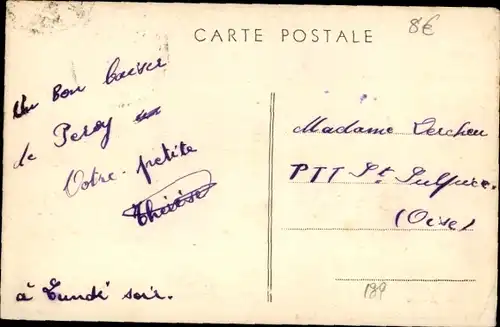 CARTE POSTALE
8€
Un bon baiser
de Peroy
Votre petite
Thérèse
à Lundi soir.
Madame
PTT St Sulpice
(Oise)
189